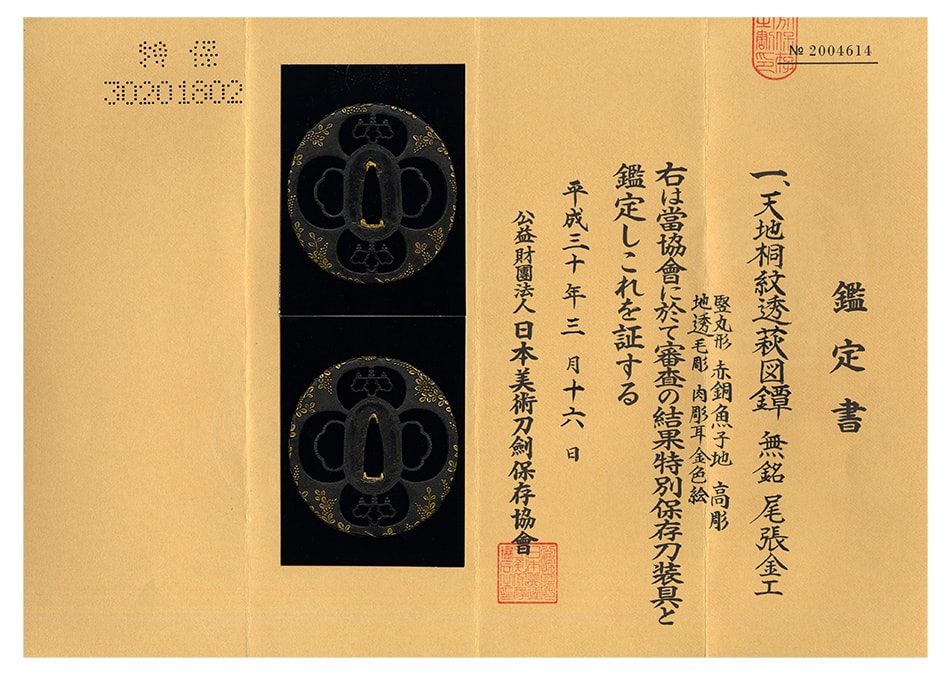 鑑定書
一、天地桐紋透萩図鐔 無銘 尾張金工
竪丸形 赤銅魚子地 高彫
地透毛彫 肉彫耳金色絵
右は當協會に於て審査の結果特別保存刀装具と
鑑定しこれを証する
平成三十年三月十六日
公益財團法人 日本美術刀剣保存協會
№ 2004614
特保
30201802